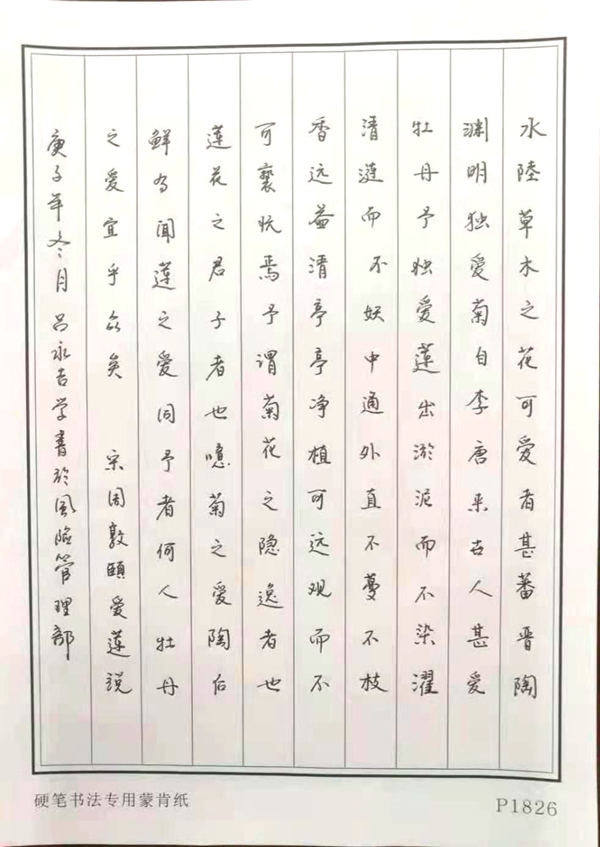 水陸草木之花可爱者甚蕃晋陶
渊明独爱菊自李唐来古人甚爱
牡丹予独爱莲出淤泥而不染濯
清涟而不妖中通外直不蔓不枝
香远益清亭亭净植可远观而不
可亵玩焉予谓菊花之隐逸者也
莲花之君子者也噫菊之爱陶后
鲜有闻莲之爱同予者何人牡丹
之爱宜乎众矣 宋周敦颐爱莲说
庚子年冬月吕永吉学書於風险管理部
硬笔书法专用蒙肯纸
P1826